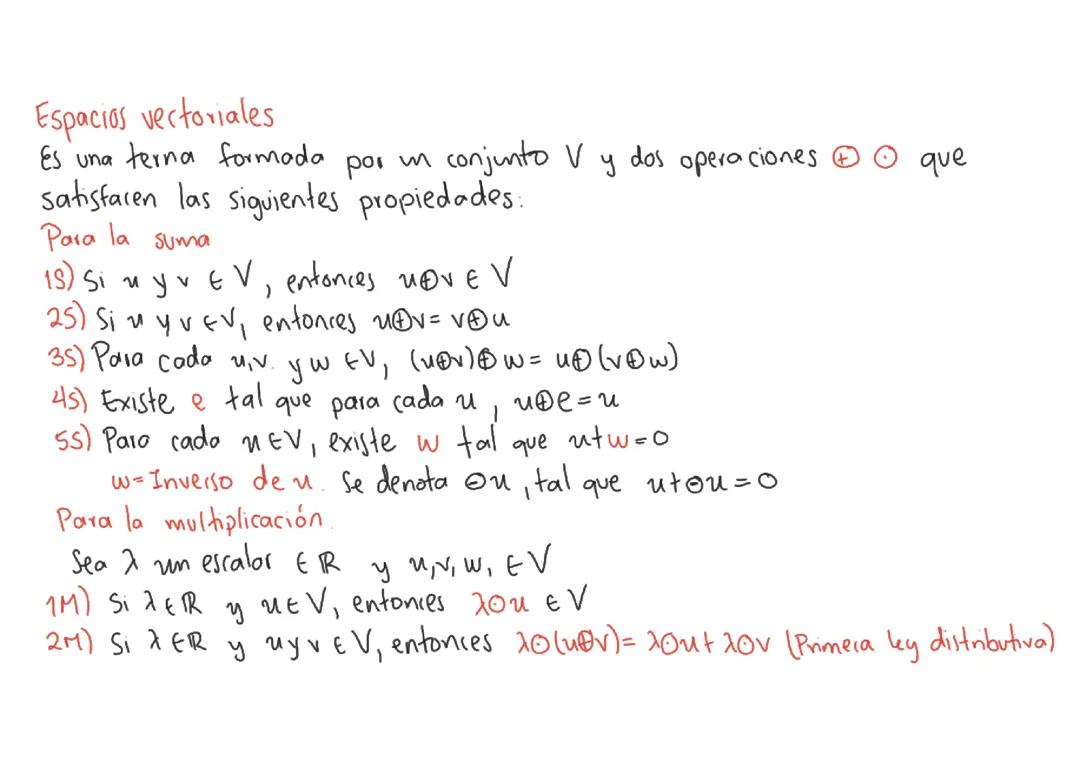 Espacios vectoriales
Es una terna formada por un conjunto V y dos operaciones ⊕ ⊙ que
satisfacen las siguientes propiedades:
Para la suma
1S) Si u y v ∈ V, entonces u⊕v ∈ V
2S) Si u y v ∈ V, entonces u⊕v = v⊕u
3S) Para cada u,v. y w ∈ V, (u⊕v)⊕w = u⊕(v⊕w)
4S) Existe e tal que para cada u, u⊕e = u
5S) Para cada u ∈ V, existe w tal que u+w=0
w = Inverso de u. Se denota ⊖u, tal que u+⊖u = 0
Para la multiplicación.
Sea λ un escalar ∈ ℝ y u,v,w, ∈ V
1M) Si λ ∈ ℝ y u ∈ V, entonces λ⊙u ∈ V
2M) Si λ ∈ ℝ y u y v ∈ V, entonces λ⊙(u⊕v) = λ⊙u + λ⊙v (Primera ley distributiva)